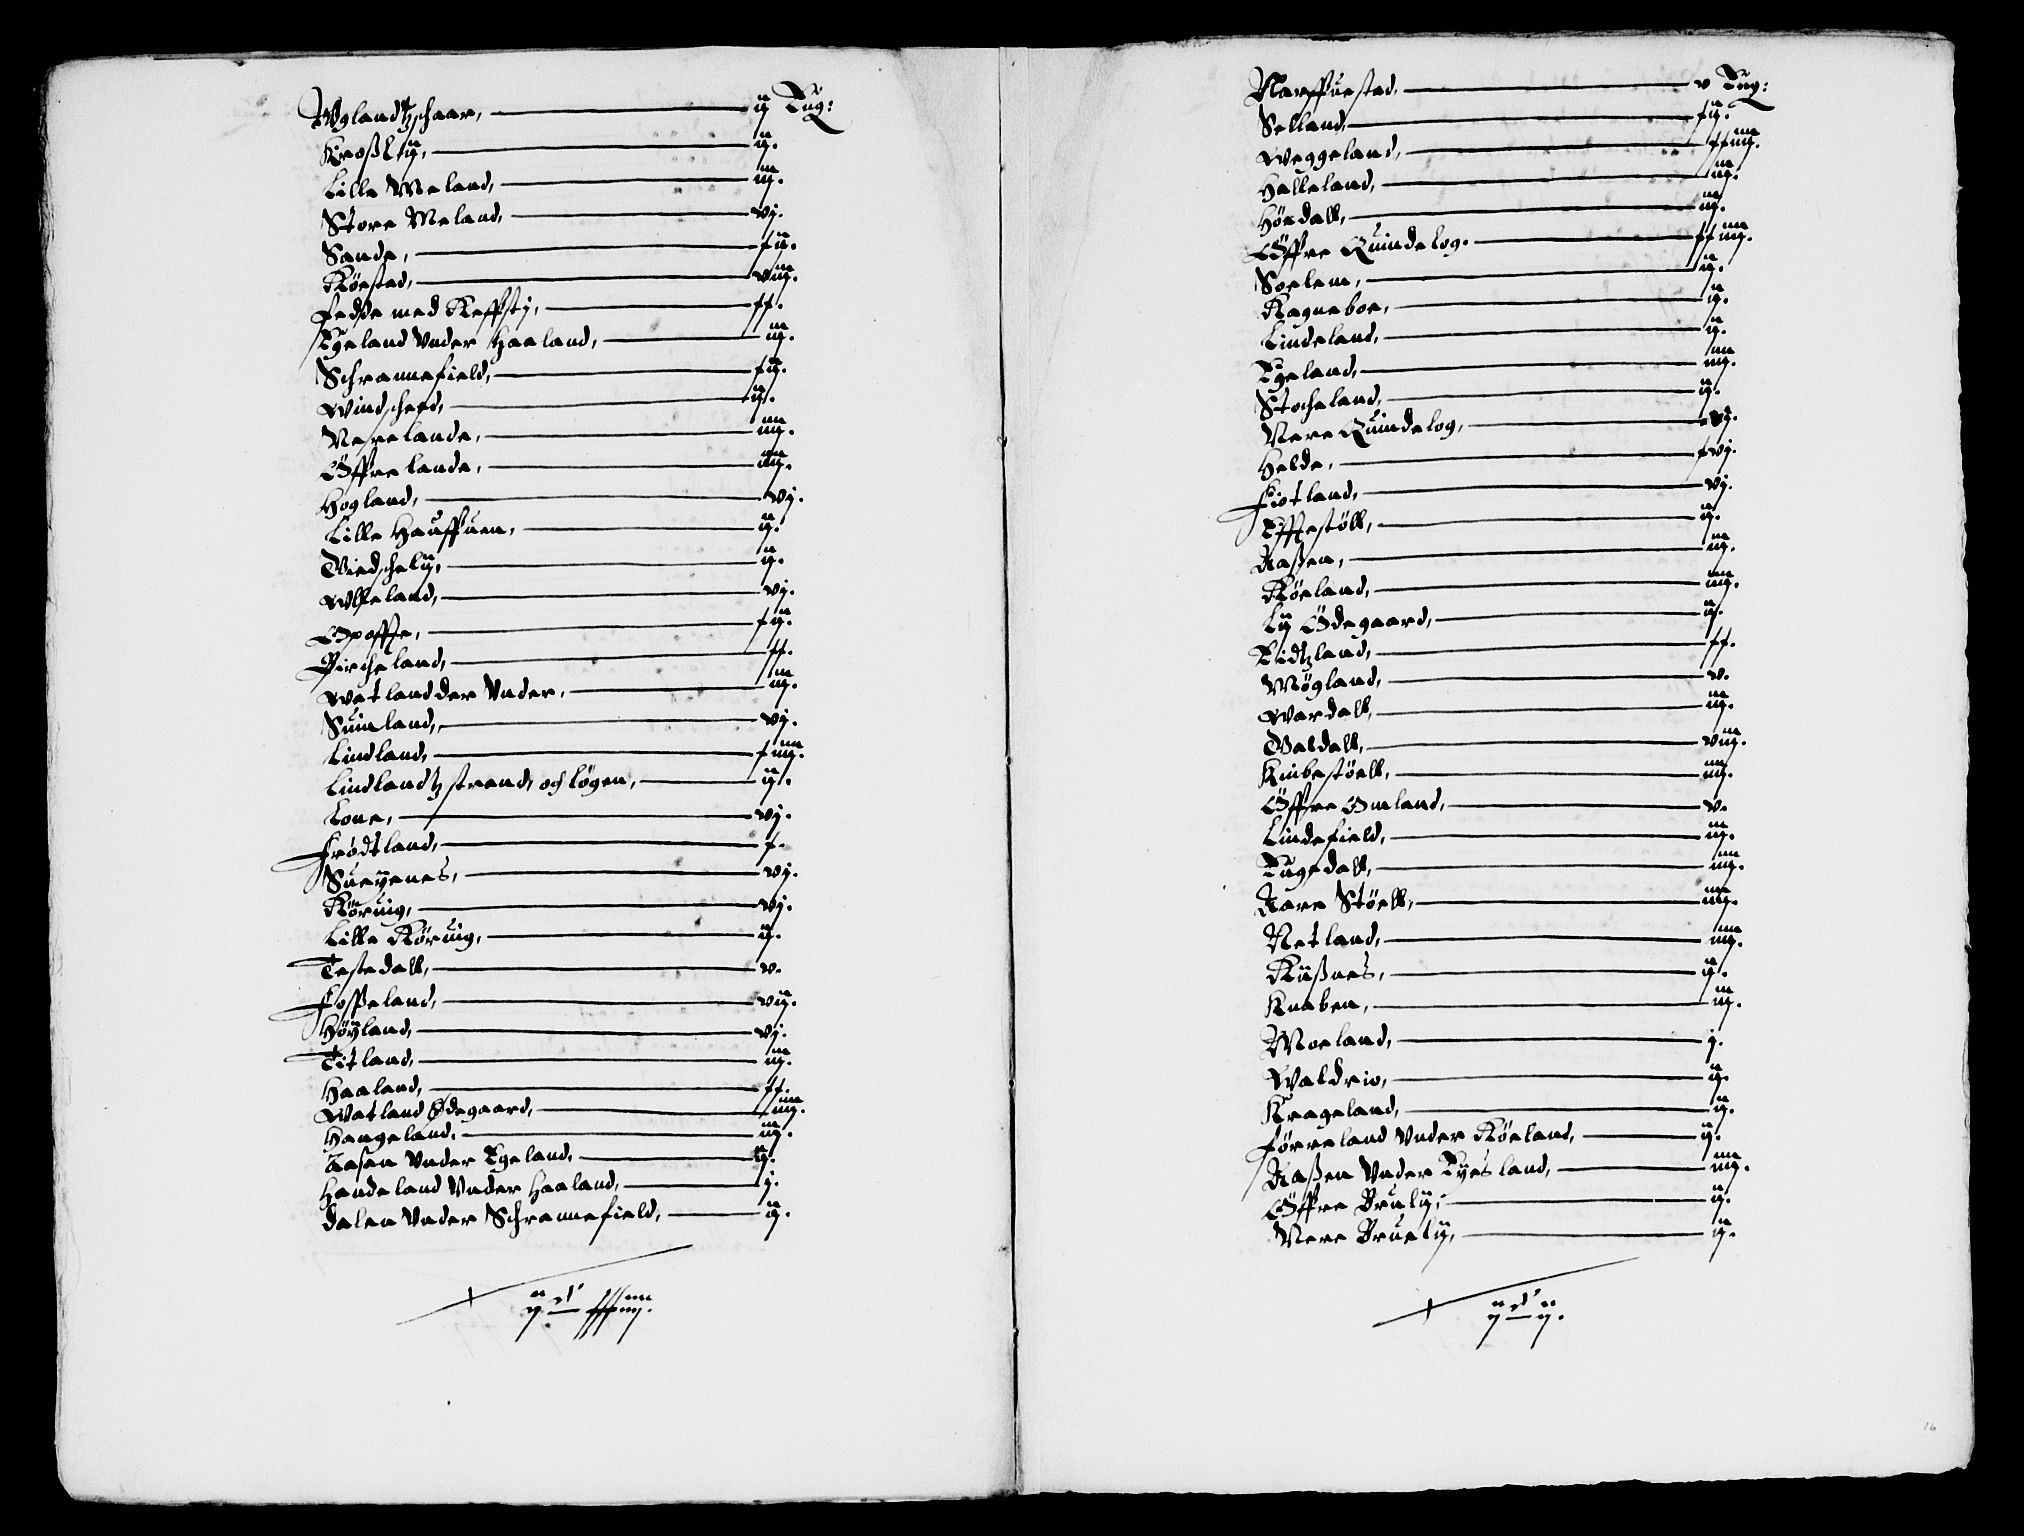 Wglandtzschaar, — ij Eng:
Kroßlij, — ij.
Lille Meland, — iij.
Store Meland, — vj.
Sande, — xij.
Röestad, — viij.
Fedße med Reffsti, — xx.
Egeland Vnder Haaland, — iij.
Schrannefield, — xij.
Windscherd, — ij.
Nerelande, — iiij.
Öffrelande, — iiij.
Hogland, — vj.
Lille Hauffuen, — ij.
Widschelij, — ij.
Wlffeland, — vj.
Opoffte, — xij.
Bircheland, — xx.
Watland der Vnder, — iij.
Suinland, — vj.
Lindland, — xiiij.
Lindlandtz strand, och Lögen, — ij.
Lone, — vj.
Frödtland, — x.
Sueijenes, — vj.
Röruig, — vj.
Lille Röruig, — ij.
Testedall, — v.
Fosseland, — vij.
Höijland, — vj.
Titland, — iij.
Haaland, — xx.
Watland Ödegaard, — iiij.
Hangeland, — iij.
Aasen Vnder Egeland, — ij.
Handeland Vnder Haaland, — j.
Dalen Vnder Schrannefield, — ij.
Narffuestad, — v Eng:
Selland, — xij.
Weggeland, — xxiiij.
Halleland, — iij.
Hördall, — iij.
Öffre Quindelog. — xxiiij.
Soelem, — ij.
Ragneboe, — ij.
Lindeland, — ij.
Egeland, — iiij.
Stocheland, — ij.
Nere Quindelog, — xij.
Helde, — xvj.
Fiotland, — vj.
Efftestöll, — ij.
Aaßen, — iij.
Röeland, — iiij.
Lij Ödegaard, — ij.
Eidtzland, — xx.
Mögland, — v.
Wardall, — iij.
Waldall, — viij.
Knibestöell, — iiij.
Öffre Omland, — v.
Lindefield, — iij.
Eugedall, — iiij.
Aare Stöell, — iiij.
Netland, — iiij.
Risnes, — ij.
Knaben, — iij.
Moeland, — j.
Waldrio, — ij.
Krageland, — ij.
Förreland Vnder Röeland, — ij.
Aaßen Vnder Eyesland, — iiij.
Öffre Bruelij, — ij.
Nere Bruelij, — ij.
16